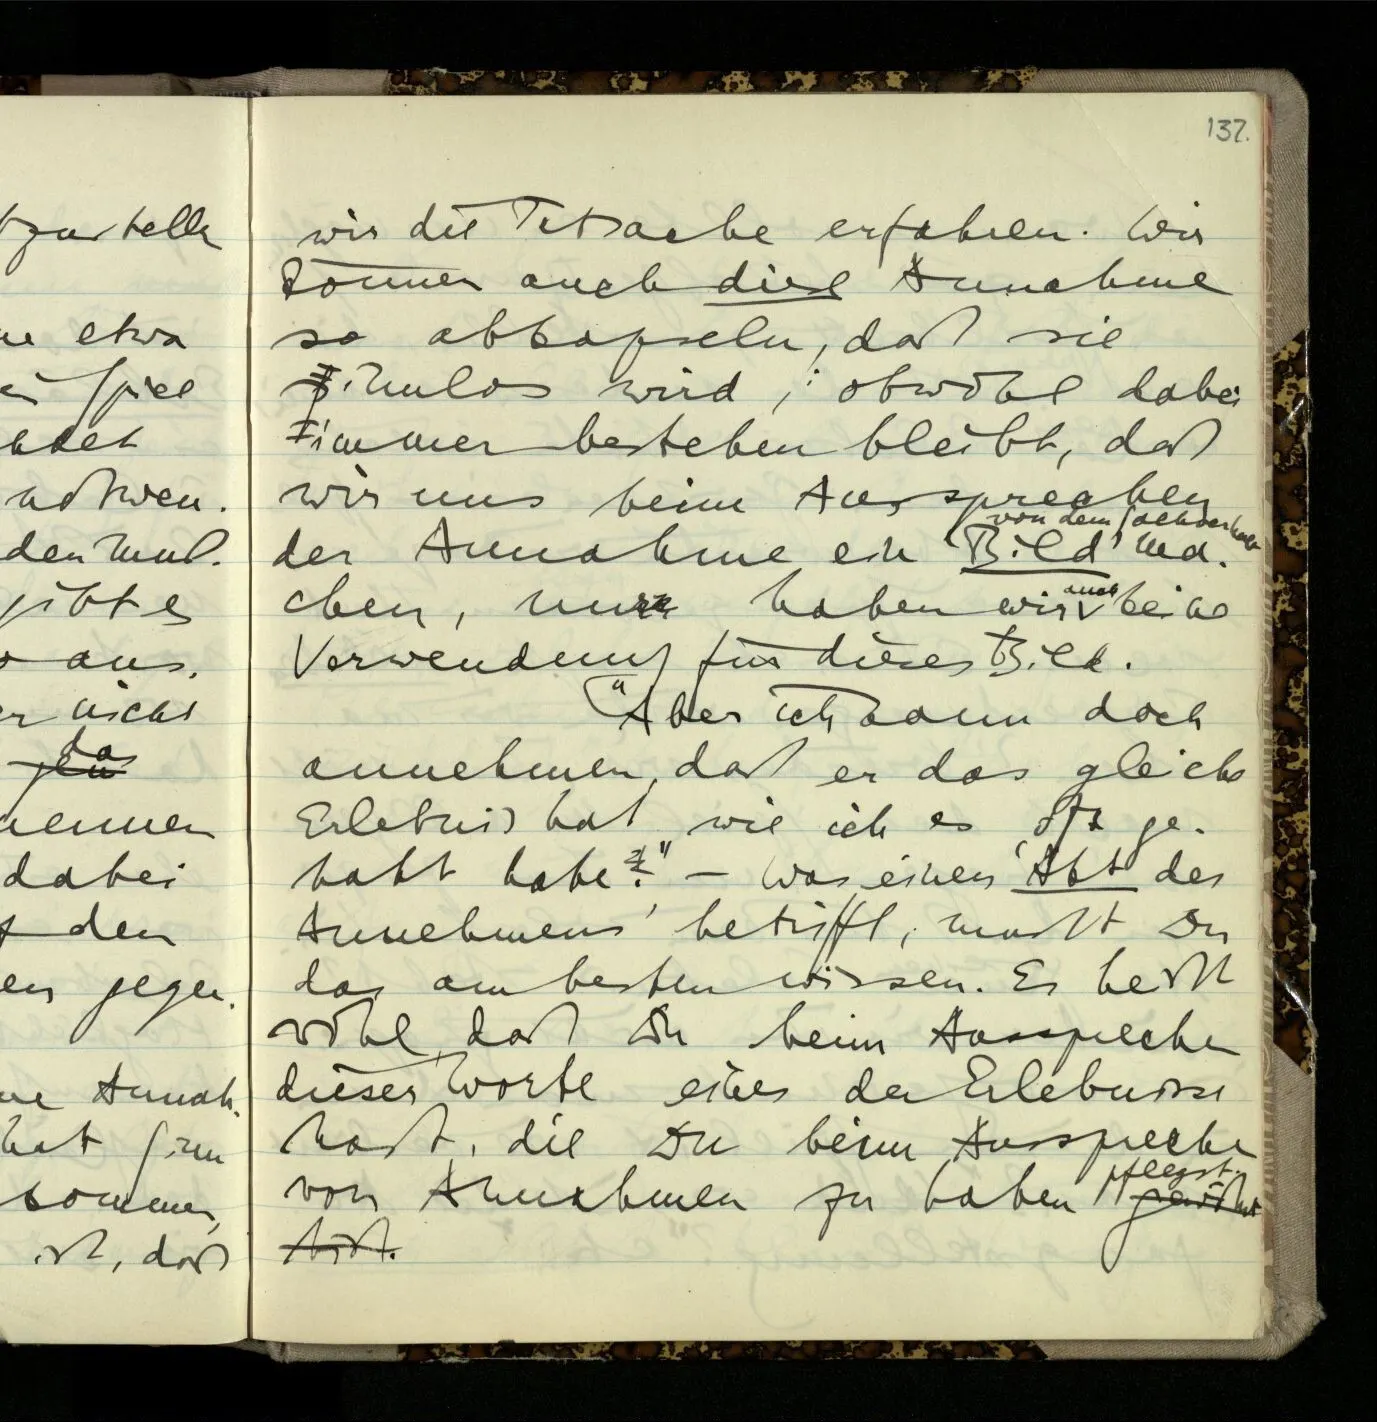 137.
wir die Tatsache erfahren. Wir
können auch diese Annahme
so abkapseln, daß sie
sinnlos wird; obwohl dabei
immer bestehen bleibt, daß
wir uns beim Aussprechen
von dem Sachverhalt
der Annahme ein 'Bild' ma-
auch
chen, nur haben wir keine
Verwendung für dieses Bild.
"Aber ich kann doch
annehmen, daß er das gleiche
Erlebnis hat, wie ich es oft ge-
habt habe?" – Was einen 'Akt des
Annehmens' betrifft, mußt Du
das am besten wissen. Es heißt
wohl, daß Du beim Aussprechen
dieser Worte eines der Erlebnisse
hast, die Du beim Aussprechen
pflegst.
von Annahmen zu haben gewohnt
bist.
etwa
Spiel
notwen-
gibt es
aus.
nicht
das
dabei
den
gegen-
Annah-
hat Sinn
ist, daß